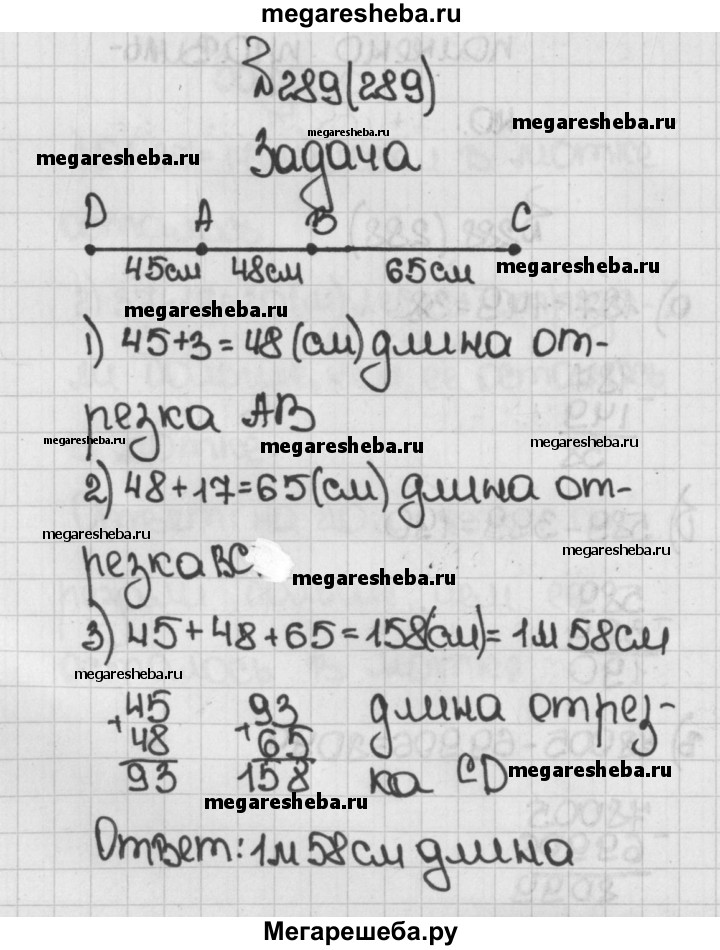 megaresheba.ru
№289(289)
megaresheba.ru
megaresheba.ru
megaresheba.ru
Задача
D A B C
45см 48см 65см
megaresheba.ru
megaresheba.ru
1) 45+3=48(см) длина от-
резка АВ
megaresheba.ru
megaresheba.ru
2) 48+17=65(см) длина от-
megaresheba.ru
megaresheba.ru
резка ВС.
megaresheba.ru
3) 45+48+65=158(см)=1м 58см
megaresheba.ru
+45 +93 длина отрез-
48 65
93 158 ка CD
megaresheba.ru
megaresheba.ru
Ответ: 1м 58см длина
Мегарешеба.ру